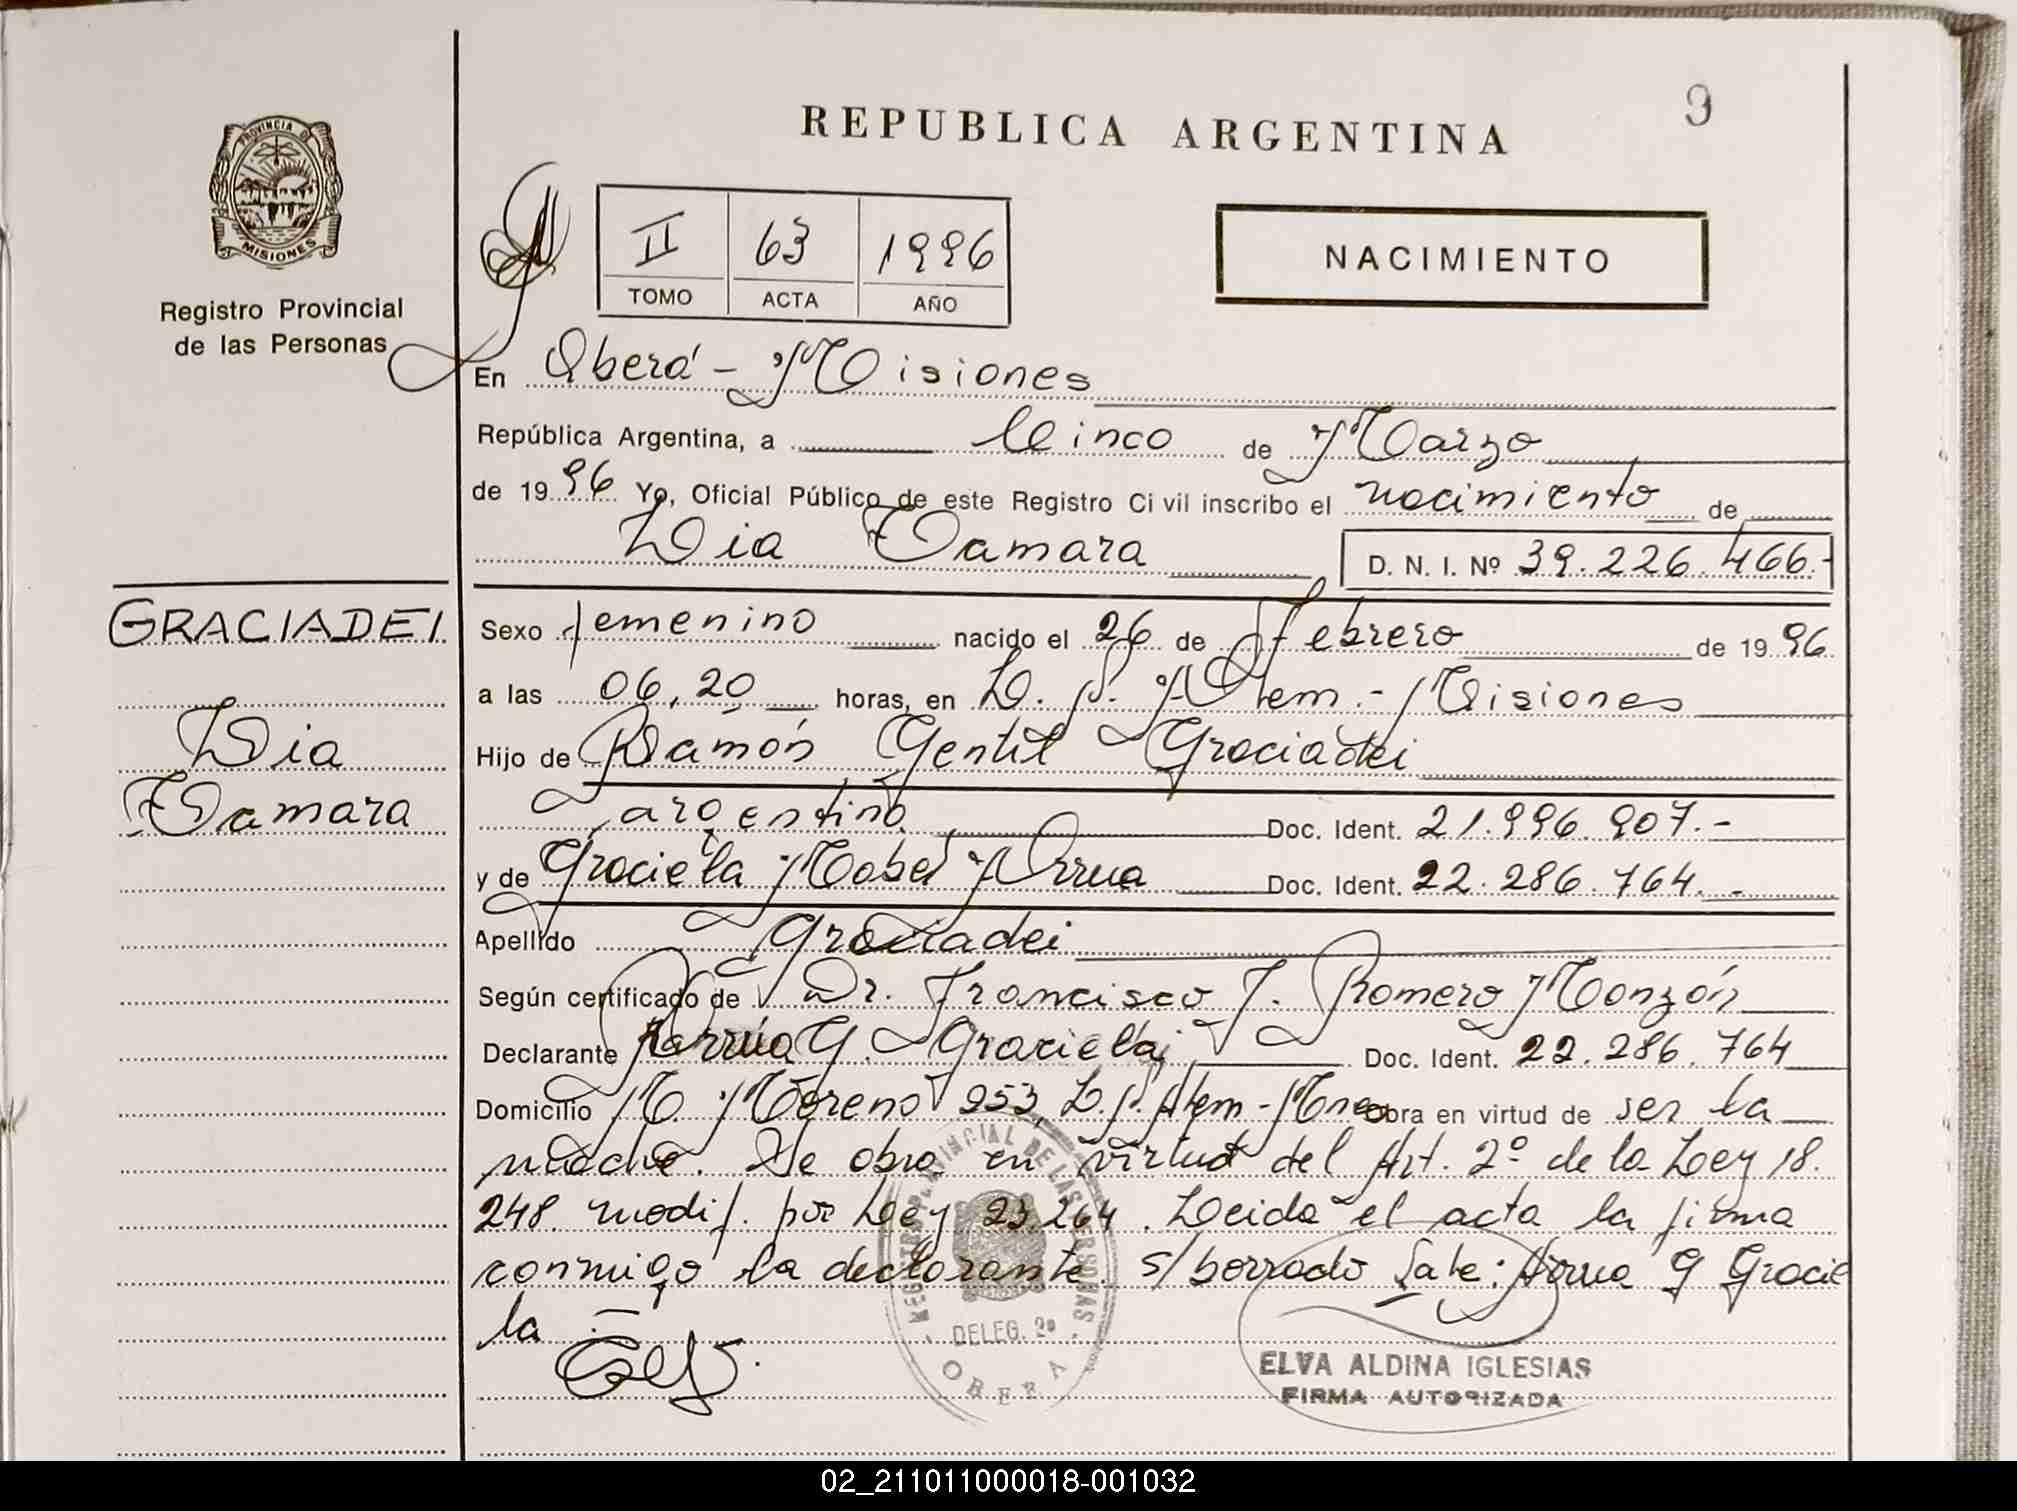 REPUBLICA ARGENTINA
9
PROVINCIA DE
MISIONES
Registro Provincial
de las Personas
II 63 1996
TOMO ACTA AÑO
NACIMIENTO
En Oberá - Misiones
República Argentina, a Cinco de Marzo
de 1996 Yo, Oficial Público de este Registro Civil inscribo el nacimiento de
Lia Tamara D. N. I. Nº 39.226.466.-
GRACIADEI
Lia
Tamara
Sexo femenino nacido el 26 de Febrero de 1996
a las 06,20 horas, en L. N. Alem.- Misiones
Hijo de Ramón Gentil Graciadei
argentino Doc. Ident. 21.996.907.-
y de Graciela Mabel Arrua Doc. Ident. 22.286.764.-
Apellido Graciadei
Según certificado de Dr. Francisco J. Romero Monzón
Declarante Arrúa G. Graciela Doc. Ident. 22.286.764
Domicilio M. Moreno 253, L.N. Alem - Mnes Obra en virtud de ser la
madre. Se obra en virtud del Art. 2º de la Ley 18.
248 modif. por Ley 23.264. Leida el acta la firma
conmigo la declarante. s/borrado Vale: Arrua G Gracie
la.-
REGISTRO PROVINCIAL DE LAS PERSONAS
DELEG. 2ª
OBERA
ELVA ALDINA IGLESIAS
FIRMA AUTORIZADA
02_211011000018-001032